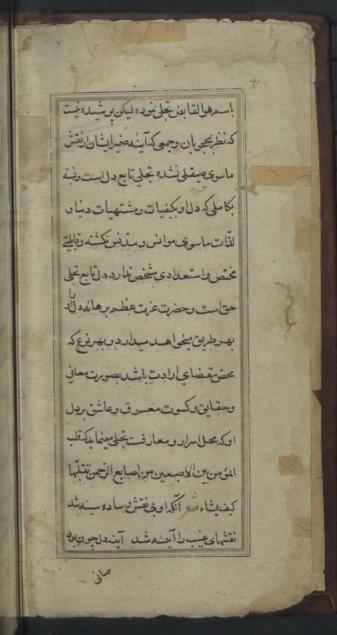 باسم هو القابض تجلی نموده لیکن پوشیده نیست
که نظر محجوبان و جمعی که آینه ضمیر ایشان از نقش
ماسوی صیقلی نشده تجلی تابع دل است و نسبه
بکاملی که دل او بکیفیات و مشتهیات دنیا و
لذات ماسوی موانس و متدنس نکشته و قابلیتی
مختص و استعدادی مشخص ندارد دل تابع تجلی
حق است و حضرت عزت عظم برهانه دل را
بهر طریق میخواهد میدارد و بهر نوع که
محض مقتضای ارادت باشد بصورت معانی
و حقایق و کسوت معسوق و عاشق بر دل
او که محل اسرار و معارفست تجلی مینماید که قلب
المؤمن بین الاصبعین من اصابع الرحمن تقلبها
کیف یشاء شعر آنکه او بی نقش و ساده سینه شد
نقشهای غیب را آینه شد آینه دل چون بود
صافی